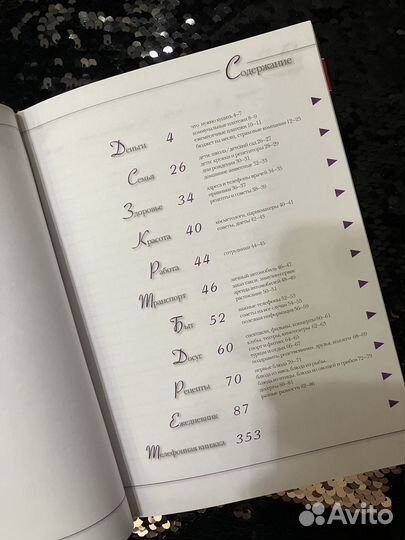 Содержание
Деньги 4
что нужно купить 4–7
коммунальные платежи 8–9
ежемесячные платежи 10–11
бюджет на месяц, страховые компании 12–25
Семья 26
дети: школа/детский сад 26–27
дети: кружки и репетиторы 28–29
дни рождения 30–31
домашние животные 32–33
Здоровье 34
адреса и телефоны врачей 34–35
прививки 36–37
рецепты и советы 38–39
Красота 40
косметологи, парикмахеры 40–41
советы, диеты 42–43
Работа 44
сотрудники 44–45
Транспорт 46
личный автомобиль 46–47
заказ такси,
аренда автомобилей 48–49
расписание 50–51
Быт 52
важные телефоны 52–53
советы на все случаи 54–55
полезная информация 56–59
Досуг 60
спектакли, фильмы, концерты 60–61
клубы, театры, кинотеатры 62–63
спорт и фитнес 64–65
туризм и отдых 66–67
поздравить: родственники, друзья, коллеги 68–69
Рецепты 70
первые блюда 70–71
блюда из мяса, блюда из рыбы,
блюда из птицы, блюда из овощей и грибов 72–79
десерты 80–81
разные разности 82–86
Ежедневник 87
Телефонная книжка 353
Avito